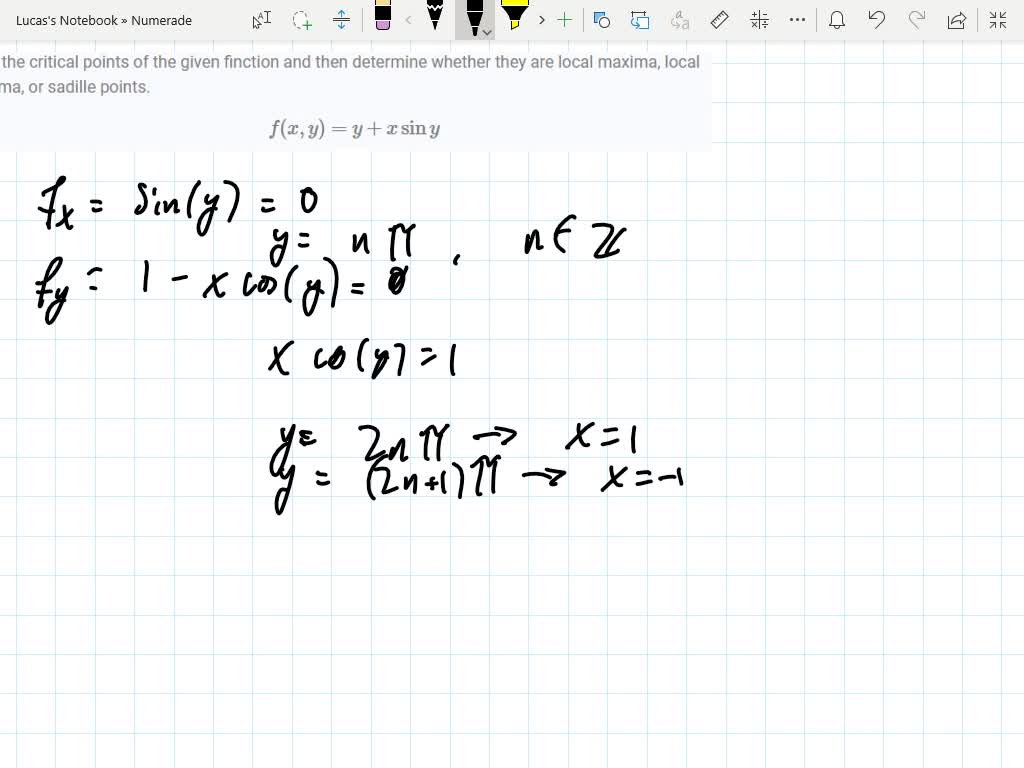 Lucas's Notebook » Numerade
the critical points of the given finction and then determine whether they are local maxima, local
ma, or sadille points.
f(x, y) = y + x sin y
fx = sin(y) = 0
y = n π , n ∈ ℤ
fy = 1 - x cos(y) = 0
x cos(y) = 1
y = 2nπ → x = 1
y = (2n+1)π → x = -1